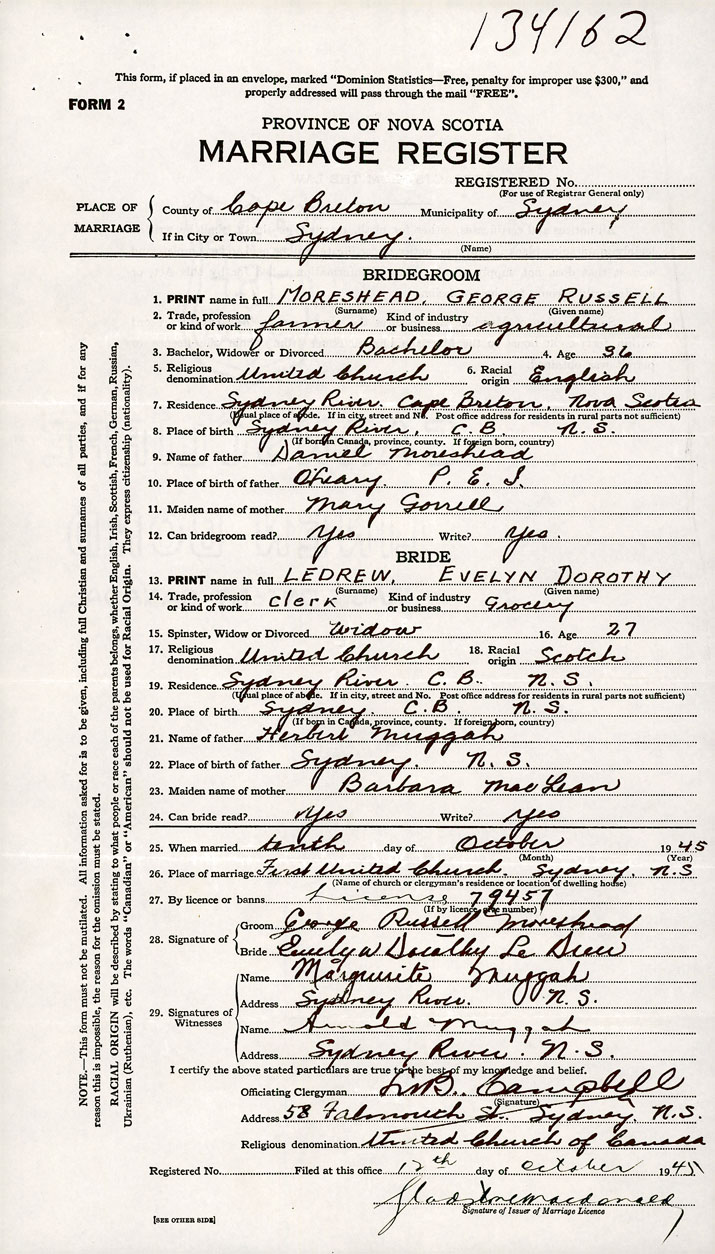 134162
This form, if placed in an envelope, marked "Dominion Statistics—Free, penalty for improper use $300," and
properly addressed will pass through the mail "FREE".
FORM 2
PROVINCE OF NOVA SCOTIA
MARRIAGE REGISTER
REGISTERED No.
(For use of Registrar General only)
PLACE OF MARRIAGE
County of Cape Breton Municipality of Sydney
If in City or Town Sydney.
(Name)
BRIDEGROOM
1. PRINT name in full MORESHEAD, GEORGE RUSSELL
(Surname) (Given name)
2. Trade, profession or kind of work farmer Kind of industry or business agricultural
3. Bachelor, Widower or Divorced Bachelor 4. Age 36
5. Religious denomination United Church 6. Racial origin English
7. Residence Sydney River. Cape Breton, Nova Scotia
(Usual place of abode. If in city, street and No. Post office address for residents in rural parts not sufficient)
8. Place of birth Sydney River, C.B N.S.
(If born in Canada, province, county. If foreign born, country)
9. Name of father Daniel Moreshead
10. Place of birth of father O'Leary. P. E. I.
11. Maiden name of mother Mary Gorrell
12. Can bridegroom read? Yes Write? Yes.
BRIDE
13. PRINT name in full LEDREW, EVELYN DOROTHY
(Surname) (Given name)
14. Trade, profession or kind of work Clerk Kind of industry or business Grocery
15. Spinster, Widow or Divorced Widow 16. Age 27
17. Religious denomination United Church 18. Racial origin Scotch
19. Residence Sydney River. C.B. N.S.
(Usual place of abode. If in city, street and No. Post office address for residents in rural parts not sufficient)
20. Place of birth Sydney C.B. N.S.
(If born in Canada, province, county. If foreign born, country)
21. Name of father Herbert Muggah
22. Place of birth of father Sydney N.S.
23. Maiden name of mother Barbara MacLean
24. Can bride read? Yes Write? Yes
25. When married tenth day of October 1945
(Month) (Year)
26. Place of marriage First United Church, Sydney, N.S
(Name of church or clergyman's residence or location of dwelling house)
27. By licence or banns License 79457
(If by licence, give number)
28. Signature of
Groom George Russell Moreshead
Bride Evelyn Dorothy Le Drew
29. Signatures of Witnesses
Name Marguerite Muggah
Address Sydney River. N.S.
Name Arnold Muggah
Address Sydney River. N.S.
I certify the above stated particulars are true to the best of my knowledge and belief.
Officiating Clergyman Campbell
(Signature)
Address 58 Falmouth St. Sydney, N.S.
Religious denomination United Church of Canada
Registered No. Filed at this office 12th day of October 1945
Gladstone Macdonald
Signature of Issuer of Marriage Licence
[SEE OTHER SIDE]
NOTE.—This form must not be mutilated. All information asked for is to be given, including full Christian and surnames of all parties, and if for any
reason this is impossible, the reason for the omission must be stated.
RACIAL ORIGIN will be described by stating to what people or race each of the parents belongs, whether English, Irish, Scottish, French, German, Russian,
Ukrainian (Ruthenian), etc. The words "Canadian" or "American" should not be used for Racial Origin. They express citizenship (nationality).